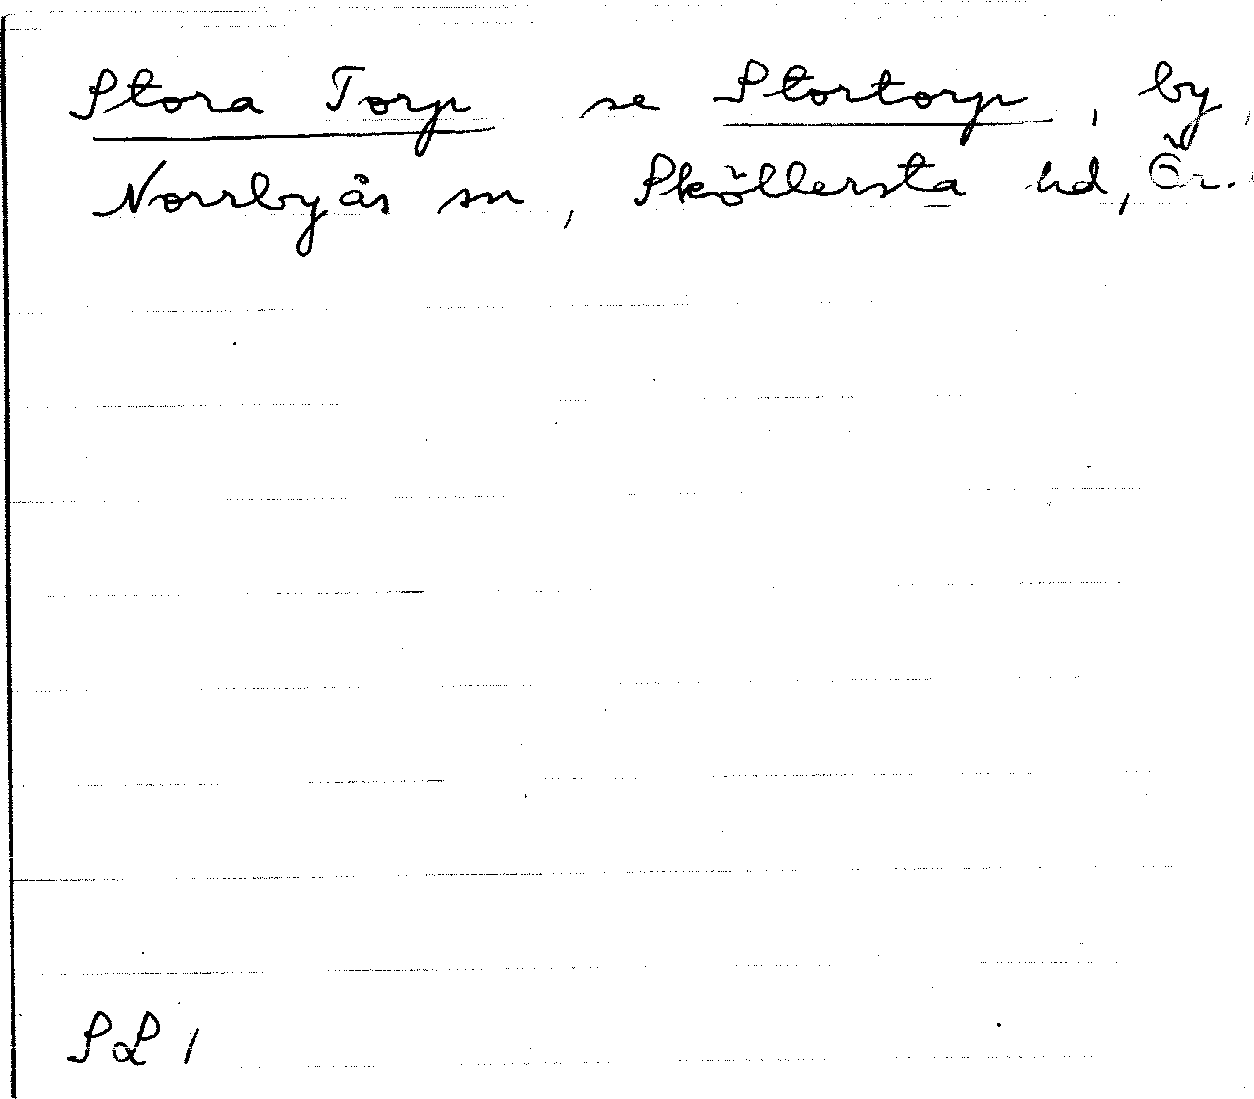 Stora Torp se Stortorp, by,
Norrbyås sn, Sköllersta hd, Ör.
SL 1